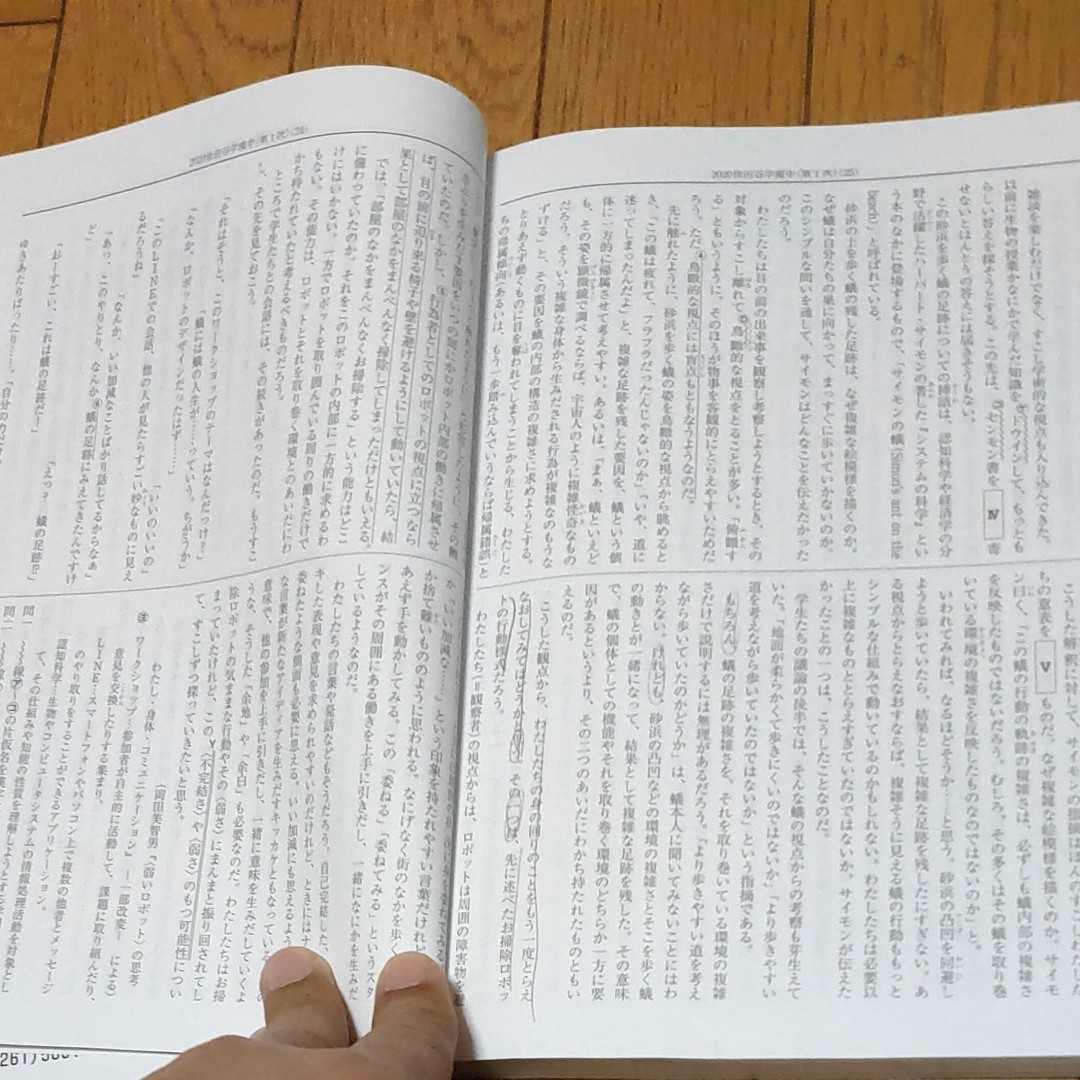 2020世田谷学園中〈第1次〉(25)
雑談を楽しむだけでなく、すこし学術的な視点も入り込んできた。
以前に生物の授業かなにかで学んだ知識を
ドウインして、もっとも
らしい答えを探そうとする。この先は、
センモン書を
Ⅳ
せないとほんとうの答えには届きそうもない。
この砂浜を歩く蟻の足跡についての挿話は、認知科学や経済学の分
野で活躍したハーバート・サイモンの著した『システムの科学』とい
う本のなかに登場するもので、「サイモンの蟻(Simon's ant on the
beach)」と呼ばれている。
砂浜の上を歩く蟻の残した足跡は、なぜ複雑な絵模様を描くのか。
なぜ蟻は自分たちの巣に向かって、まっすぐに歩いていかないのか。
このシンプルな問いを通して、サイモンはどんなことを伝えたかった
のだろう。
わたしたちは目の前の出来事を観察し考察しようとするとき、その
対象からすこし離れて
鳥瞰的な視点をとることが多い。「俯瞰す
る」ともいうように、そのほうが物事を客観的にとらえやすいためだ
ろう。ただ、鳥瞰的な視点には盲点もともなうようなのだ。
先に触れたように、砂浜を歩く蟻の姿を鳥瞰的な視点から眺めると
き、「この蟻は疲れて、フラフラだったんじゃないのか」「いや、道に
迷ってしまったんだよ」と、複雑な足跡を残した要因を、蟻という個
体に一方的に帰属させて考えやすい。あるいは、「まぁ、蟻といえど
も、その姿を顕微鏡で調べてみるならば、宇宙人のように複雑怪奇なもの
だろう。そういう複雑な身体から生みだされる行為が複雑なのもうな
ずける」と、その要因を蟻の内部の構造の複雑さに求めようとする。
とりあえず動くものに目を奪われてしまうことから生じる、わたした
ちの帰属傾向(あるいは、もう一歩踏み込んでいうならば帰属錯誤)と
こうした解釈に対して、サイモンの指摘はほんのすこし
ちの意表を
Ⅴ
ものだ。なぜ複雑な絵模様を描くのか、サイモ
ン曰く、「この蟻の行動の軌跡の複雑さは、必ずしも蟻内部の複雑さ
を反映したものではないだろう。むしろ、その多くはその蟻を取り巻
いている環境の複雑さを反映したものなのではないのか」と。
いわれてみれば、なるほどそうか……と思う。砂浜の凸凹を回避し
ながら歩いていたら、結果として複雑な足跡を残したにすぎない。あ
る視点からとらえなおすならば、複雑そうに見える蟻の行動ももっと
シンプルな仕組みで動いているのかもしれない。わたしたちは必要以
上に複雑なものととらえすぎていたのではないか、サイモンが伝えた
かったことの一つは、こうしたことなのだ。
学生たちの議論の後半では、そんな蟻の視点からの考察も芽生えて
いた。「地面が柔らかくて歩きにくいのではないか」「より歩きやすい
道を考えながら歩いていたのではないか」という指摘である。
もちろん、蟻の足跡の複雑さを、それを取り巻いている環境の複雑
さだけで説明するには無理があるだろう。「より歩きやすい道を考え
ながら歩いていたのかどうか」は、蟻本人に聞いてみないことにはわ
からない。けれども、砂浜の凸凹などの環境の複雑さとそこを歩く蟻
の動きとが一緒になって、結果として複雑な足跡を残した。その意味
で、蟻の個体としての機能やそれを取り巻く環境のどちらか一方に要
因があるというより、その二つのあいだにわかち持たれたものといい
えるのだ。
こうした観点から、わたしたちの身の回りのことをもう一度とらえ
なおしてみてはどうかと思う。その一つは、先に述べたお掃除ロボッ
トの行動様式だろう。
わたしたち(=観察者)の視点からは、ロボットは周囲の障害物を避
2020世田谷学園中〈第1次〉(24)
ていたのだ。しかし、行為者としてのロボットの視点に立つなら
ば、目の前に迫り来る椅子や壁を避けるようにして動いていたら、結
果として部屋のなかをまんべんなく掃除してしまっただけともいえる。
では、「部屋のなかをまんべんなくお掃除する」という能力はどこ
に備わっていたのか。それをこのロボットの内部に一方的に求めるわ
けにはいかない。一方でロボットを取り囲んでいる周りの働きだけで
もない。その能力は、ロボットとそれを取り巻く環境とのあいだにわ
かち持たれていたと考えるべきものだろう。
ところで学生たちとの会話には、その続きがあったのだ。もうすこ
し、その先を見ておこう。
「それはそうと、このワークショップのテーマはなんだっけ?」
「蟻には蟻の人生が……っていう。ちがうか」
「なんか、ロボットのデザインだったはず……」
「いいのいいの」
「このLINEでの会話、他の人が見たらすごい妙なものに見え
るだろうね」
「なんか、いい加減なことばかり話してるからなぁ」
「あっ、このやりとり、なんか蟻の足跡にみえてきたんですけ
ど」
「えっ? 蟻の足跡!?」
「おーすごい、これは蟻の足跡だ!」
か捨て難いもののように思われる。なにげなく街のなかを歩く
あえず手を動かしてみる。この「委ねる」「委ねてみる」というスタ
ンスがその周囲にある働きを上手に引きだし、一緒になにかを生みだ
しているようなのだ。
わたしたちの言葉や発話などもそうだろう。自己完結した、
キした表現や意見を求められやすいのだけれど、ときには
委ねたような構えも必要に思える。いい加減にも思えるよう
な言葉が新たなアイディアを生みだすキッカケともなっている
意味で、他の参加を上手に引きだし、一緒に意味を生みだしていくよ
うな、そうした「余地」や「余白」も必要なのだ。わたしたちはお掃
除ロボットの気ままな行動やその〈弱さ〉にまんまと振り回されてし
まっていたけれど、この〈不完結さ〉や〈弱さ〉のもつ可能性につい
て、すこしずつ探っていきたいと思う。
(岡田美智男『〈弱いロボット〉の思考
わたし・身体・コミュニケーション』―一部改変― による)
注 ワークショップ…参加者が自主的に活動して、課題に取り組んだり、
意見を交換したりする集まり。
LINE…スマートフォンやパソコン上で複数の他者とメッセージ
のやり取りをすることができるアプリケーション。
認知科学…生物やコンピュータシステムの情報処理活動を対象とし
て、その仕組みや知能の性質を理解しようとする学